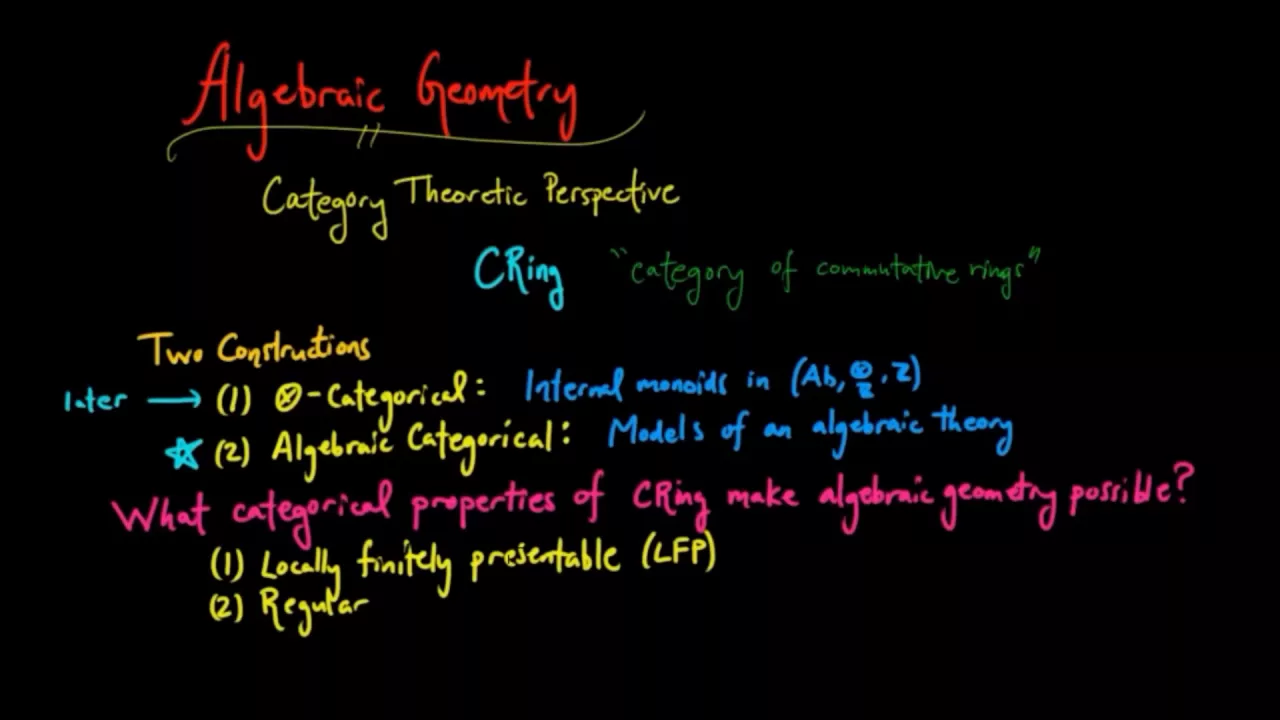 Algebraic Geometry
Category Theoretic Perspective
CRing "category of commutative rings"
Two Constructions
later → (1) ⊗-Categorical: Internal monoids in (Ab, ⊗ℤ, ℤ)
☆ (2) Algebraic Categorical: Models of an algebraic theory
What categorical properties of CRing make algebraic geometry possible?
(1) Locally finitely presentable (LFP)
(2) Regular